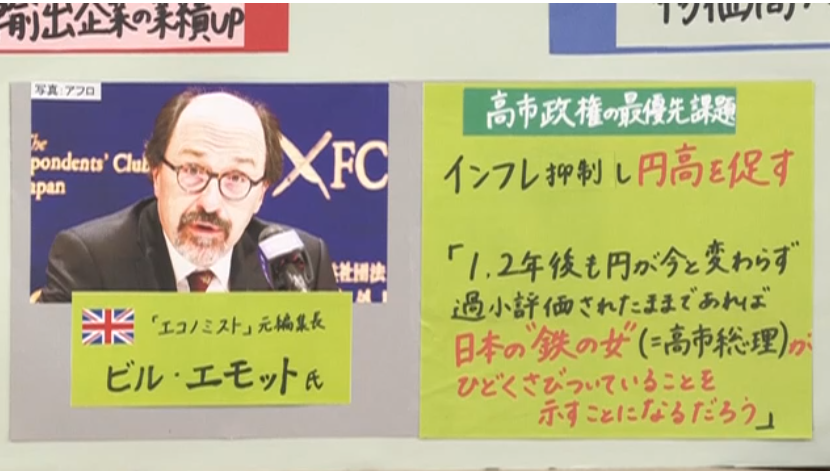 輸出企業の業積UP
物価高
写真:アフロ
The
pondents' Club
apan
FC
社団法
高市政権の最優先課題
インフレ抑制し円高を促す
「1.2年後も円が今と変わらず
過小評価されたままであれば
日本の"鉄の女"(=高市総理)が
ひどくさびついていることを
示すことになるだろう」
「エコノミスト」元編集長
ビル・エモット氏